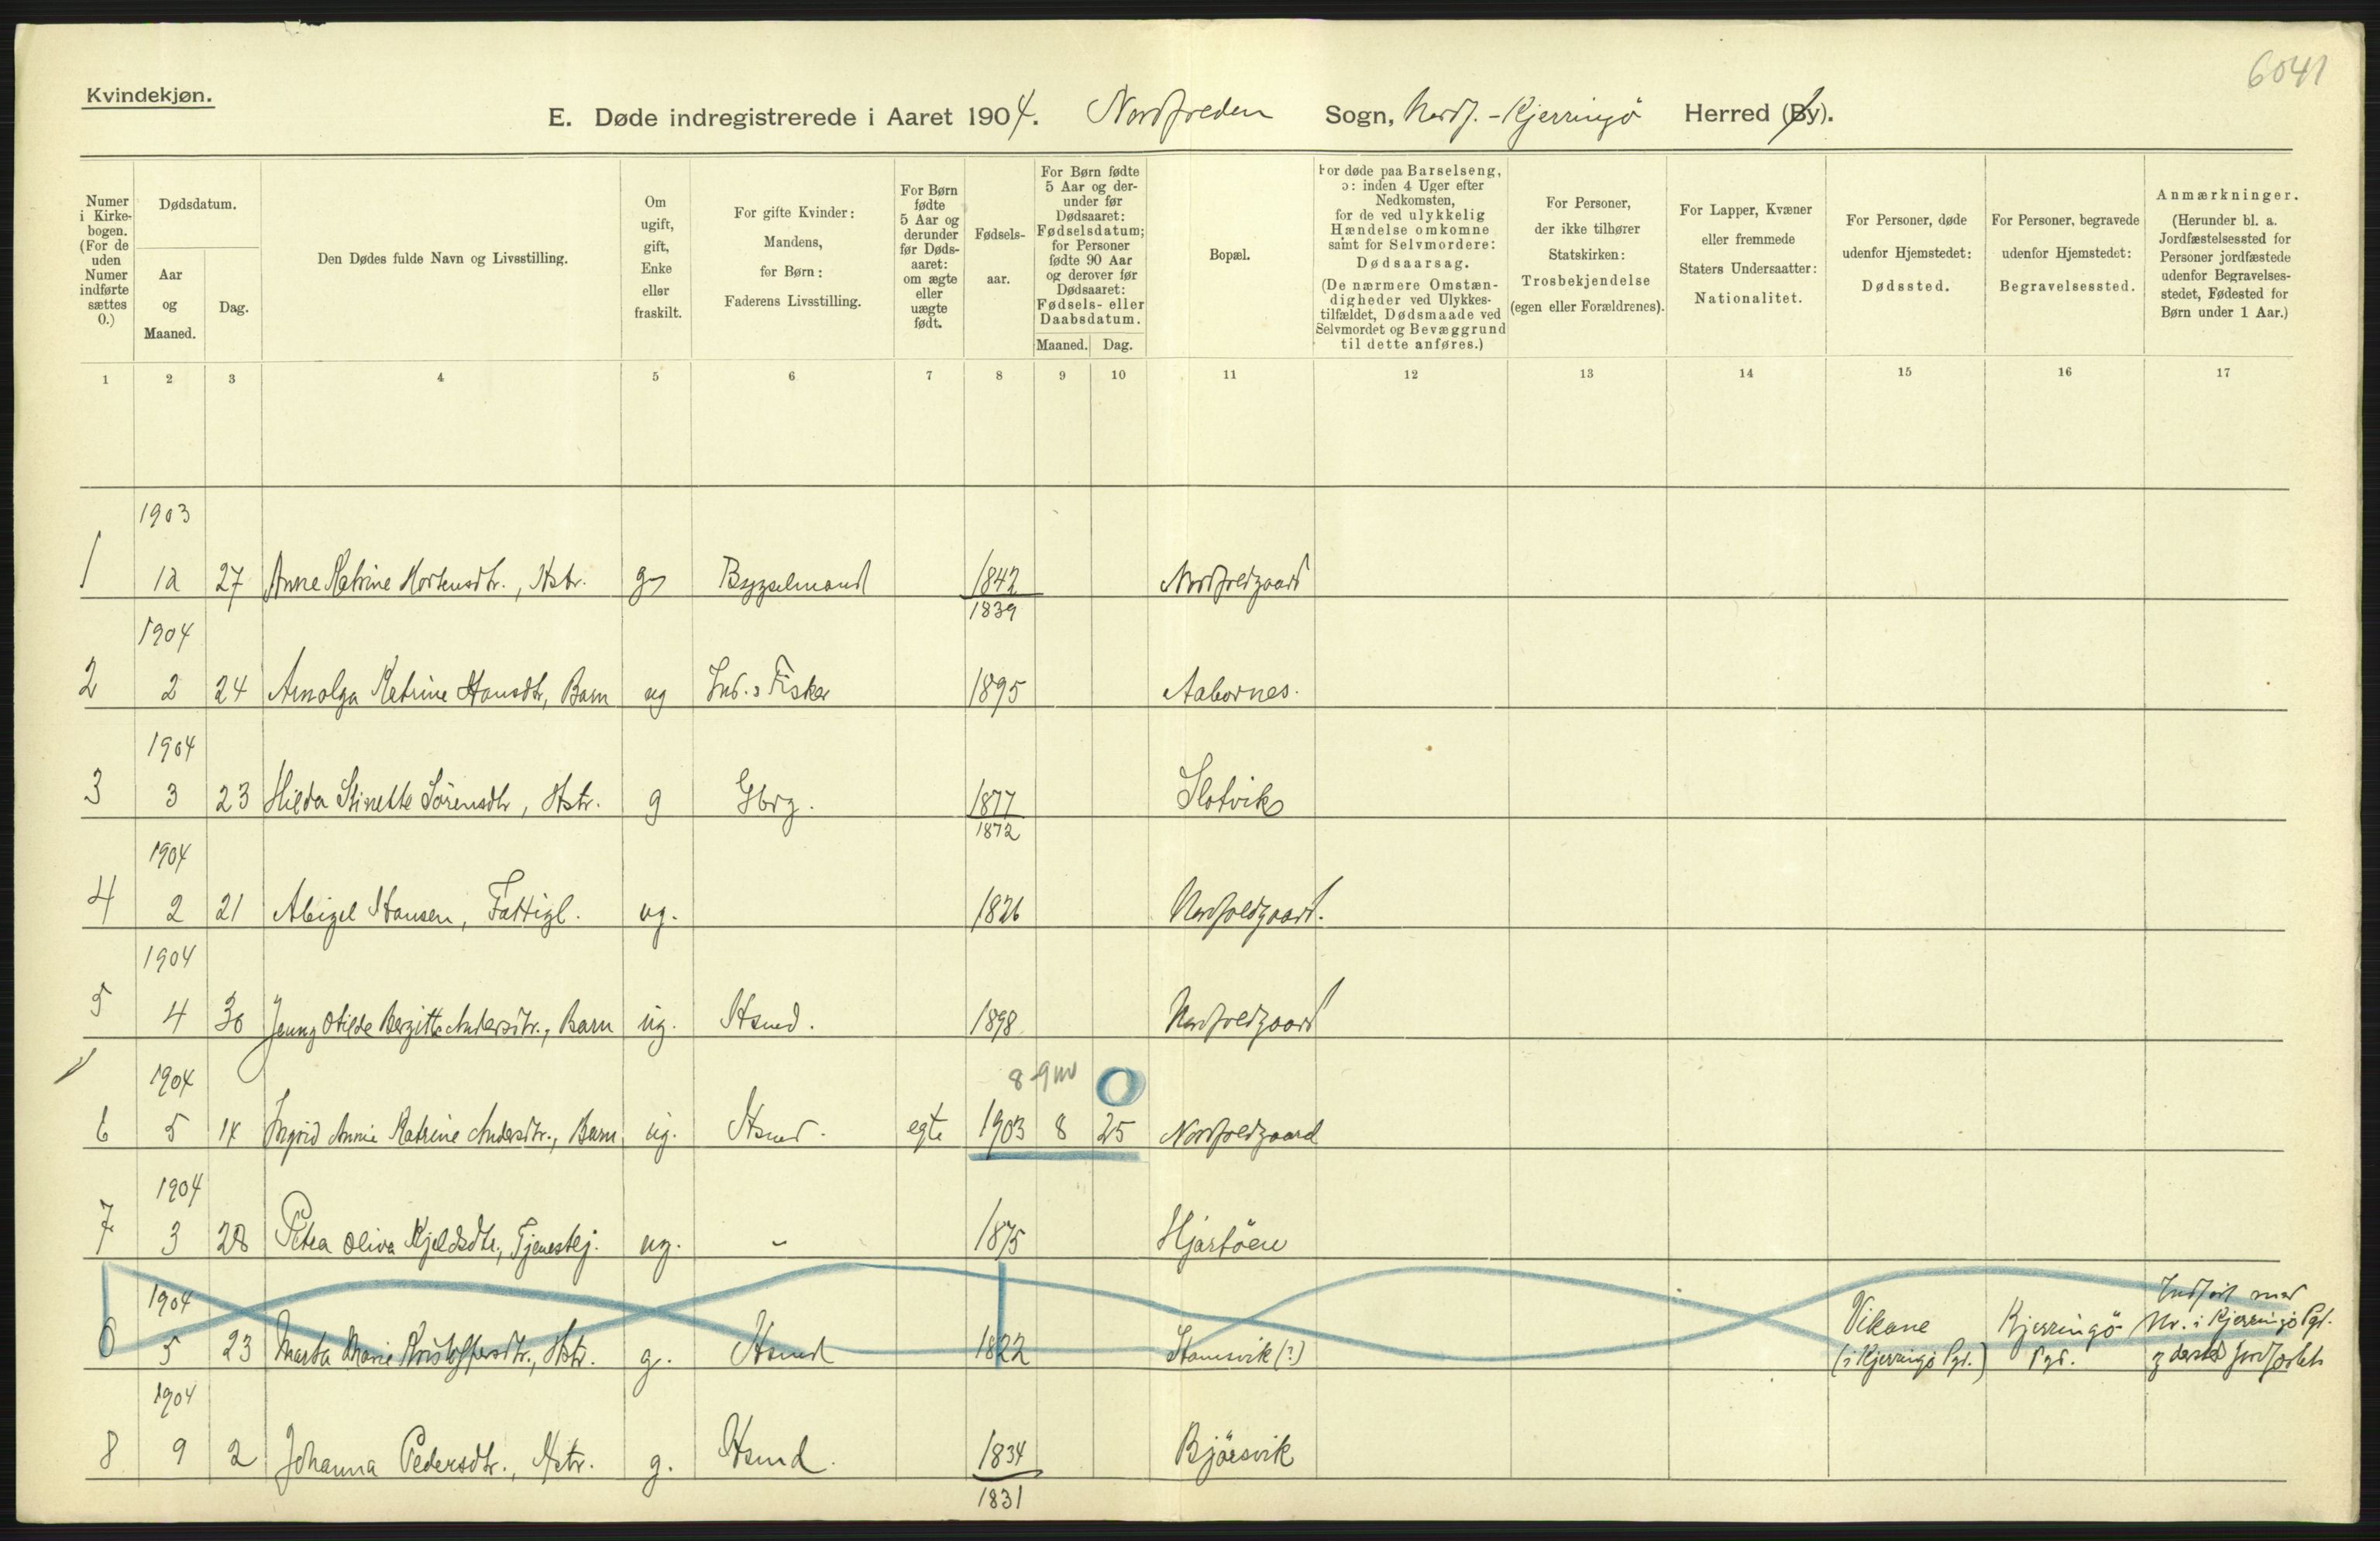 6041
Kvindekjøn.
E. Døde indregistrerede i Aaret 1904. Nordfolden Sogn, Nordf.-Kjerringö Herred (By).
Numer i Kirkebogen. (For de uden Numer indførte sættes 0.)
Dødsdatum.
Aar og Maaned.
Dag.
Den Dødes fulde Navn og Livsstilling.
Om ugift, gift, Enke eller fraskilt.
For gifte Kvinder: Mandens, for Børn: Faderens Livsstilling.
For Børn fødte 5 Aar og derunder før Dødsaaret: om ægte eller uægte født.
Fødselsaar.
For Børn fødte 5 Aar og derunder før Dødsaaret: Fødselsdatum; for Personer fødte 90 Aar og derover før Dødsaaret: Fødsels- eller Daabsdatum.
Maaned. Dag.
Bopæl.
For døde paa Barselseng, ɔ: inden 4 Uger efter Nedkomsten, for de ved ulykkelig Hændelse omkomne samt for Selvmordere: Dødsaarsag. (De nærmere Omstændigheder ved Ulykkestilfældet, Dødsmaade ved Selvmordet og Bevæggrund til dette anføres.)
For Personer, der ikke tilhører Statskirken: Trosbekjendelse (egen eller Forældrenes).
For Lapper, Kvæner eller fremmede Staters Undersaatter: Nationalitet.
For Personer, døde udenfor Hjemstedet: Dødssted.
For Personer, begravede udenfor Hjemstedet: Begravelsessted.
Anmærkninger. (Herunder bl. a. Jordfæstelsessted for Personer jordfæstede udenfor Begravelsesstedet, Fødested for Børn under 1 Aar.)
1 2 3 4 5 6 7 8 9 10 11 12 13 14 15 16 17
1903
1 12 27 Anne Katrine Mortensdtr., Hstr. g Bygselmand 1842 Nordfoldgaard
1839
1904
2 2 24 Arnolga Katrine Hansdtr, Barn ug Ind. & Fisker 1895 Aabornes.
1904
3 3 23 Hilda Stinette Sörensdtr, Hstr. g Gbrg. 1877 Slotvik
1872
1904
4 2 21 Abigel Hansen, Fattigl. ug. 1826 Nordfoldgaard.
1904
5 4 30 Jenny Otilde Bergitte Andersdtr., Barn ug. Hsmd. 1898 Nordfoldgaard
8-9 m 0
1904
6 5 14 Ingrid Annie Katrine Andersdtr., Barn ug. Hsmd. egte 1903 8 25 Nordfoldgaard
1904
7 3 28 Petra Oliva Kjeldsdtr., Tjenestej. ug. - 1875 Hjartöen
1904
0 5 23 Marta Marie Kristoffersdtr., Hstr. g. Hsmd 1822 Stamsvik (?) Vikane (i Kjerringö Pgl.) Kjerringö Pgl. Indfört med Nr. i Kjerringö Pgl. g dersteds jordfæstet
1904
8 9 2 Johanna Pedersdtr., Hstr. g. Hsmd. 1834 Björesvik
1831